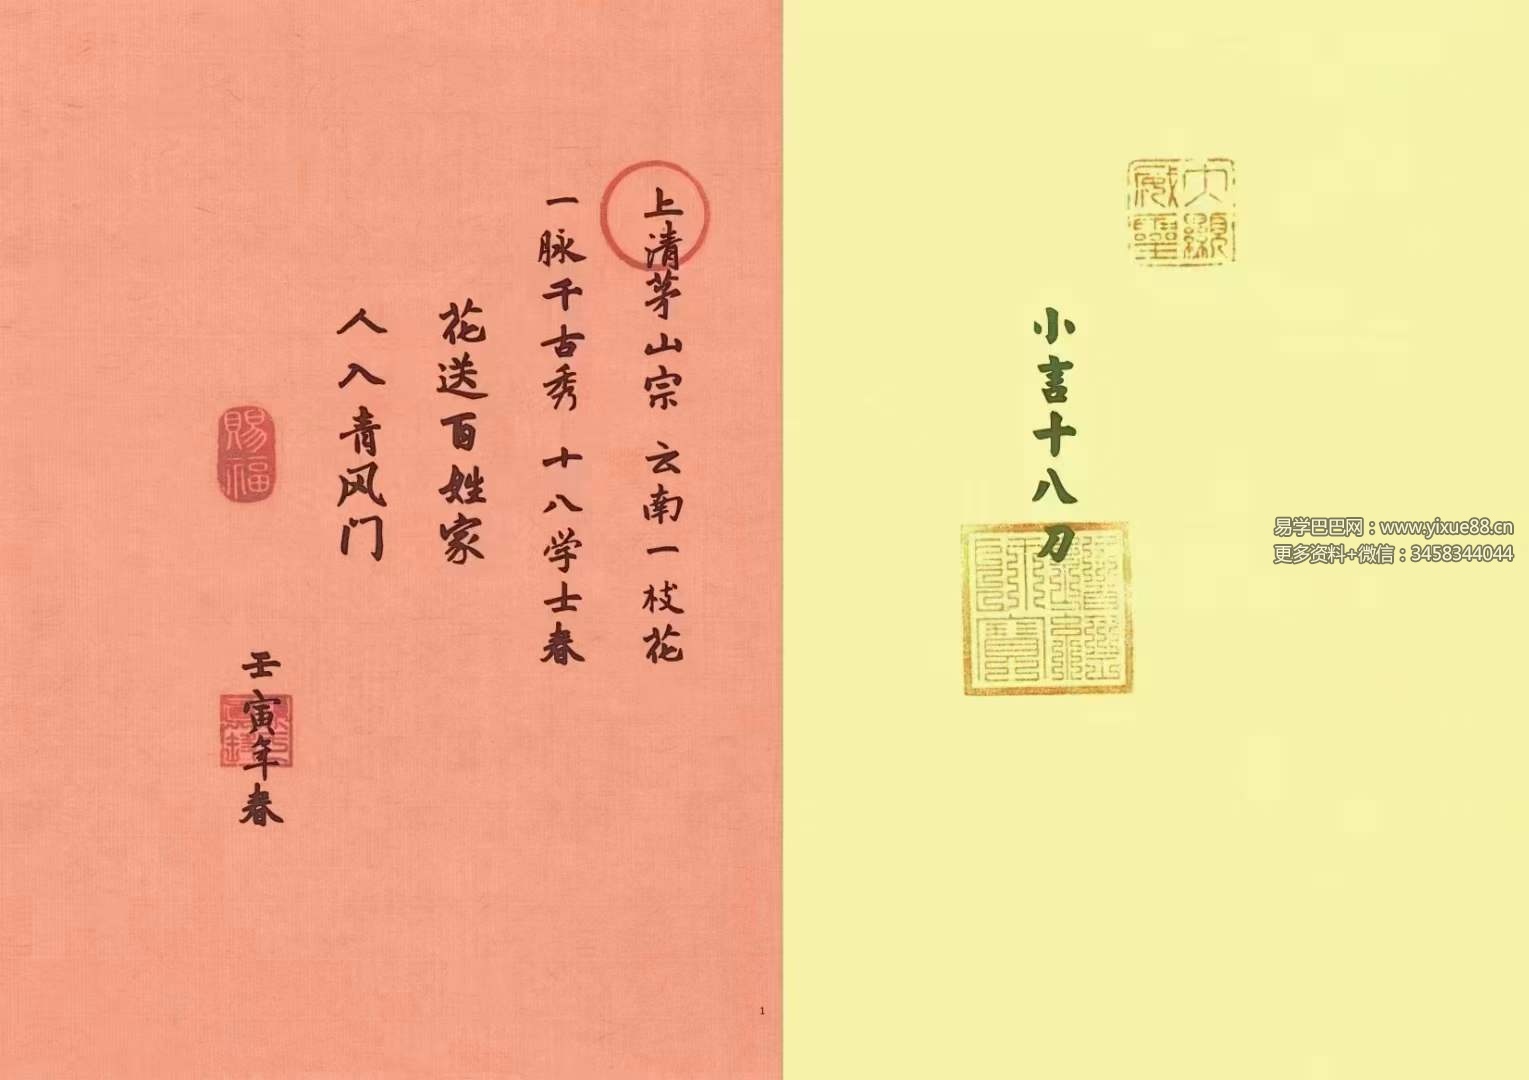 大顯威靈
小言十八刀
易学巴巴网：www.yixue88.cn
更多资料+微信：3458344044
上清茅山宗 云南一枝花
一脉千古秀 十八学士春
花送百姓家
人入青风门
賜福
壬寅年春
1